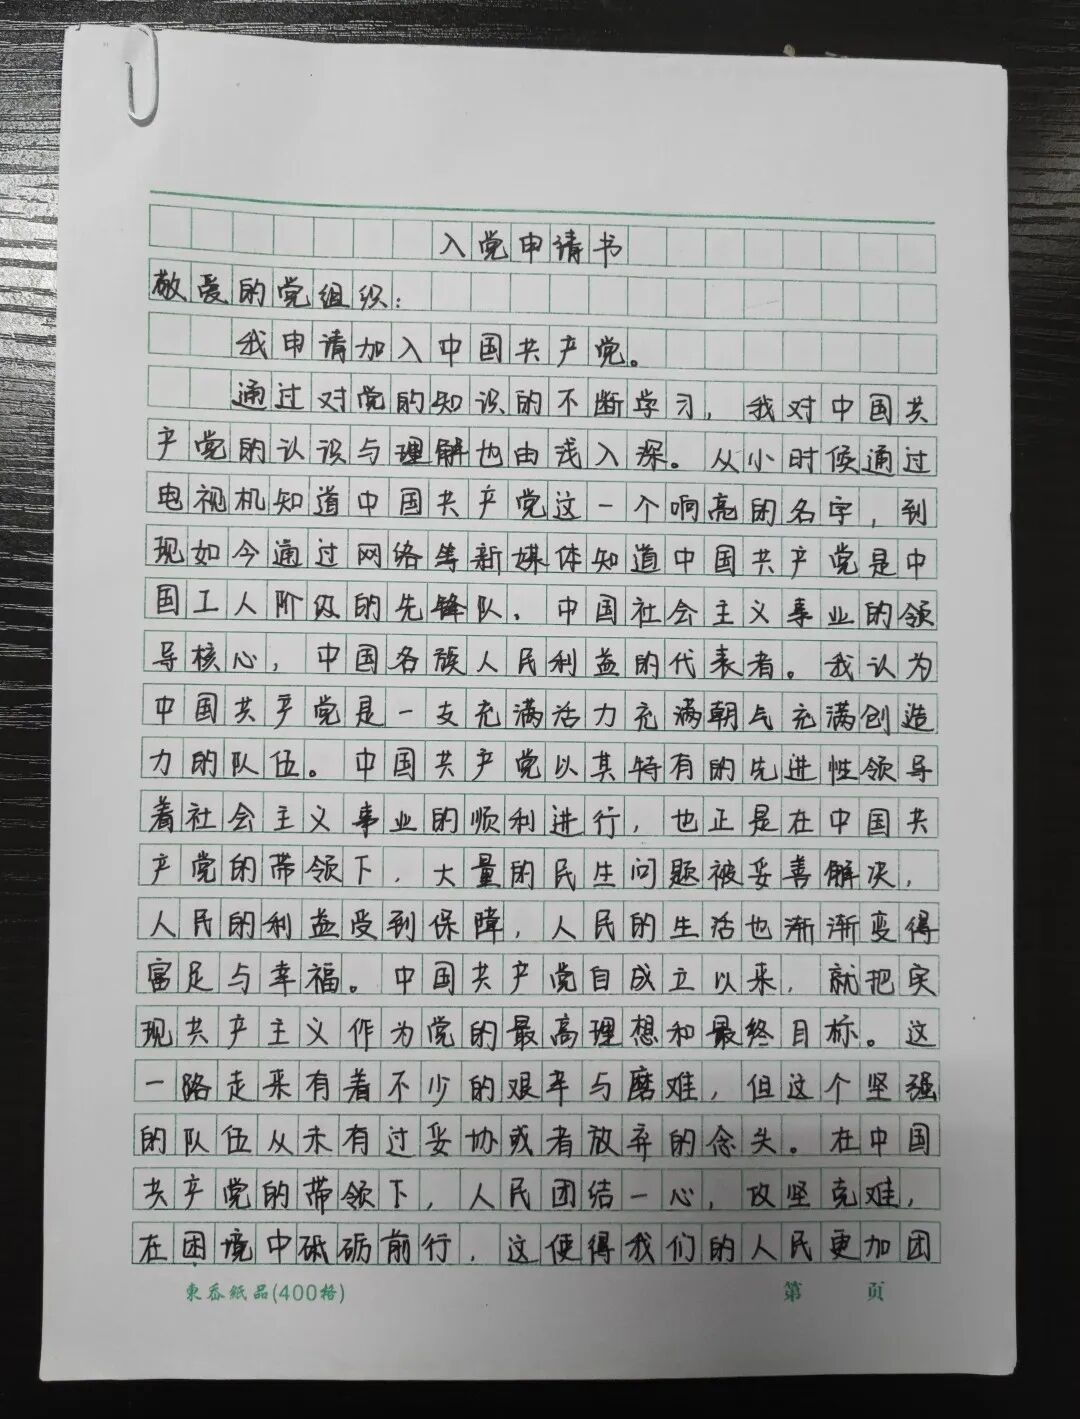 入党申请书
敬爱的党组织：
我申请加入中国共产党。
通过对党的知识的不断学习，我对中国共
产党的认识与理解也由浅入深。从小时候通过
电视机知道中国共产党这一个响亮的名字，到
现如今通过网络等新媒体知道中国共产党是中
国工人阶级的先锋队、中国社会主义事业的领
导核心，中国各族人民利益的代表者。我认为
中国共产党是一支充满活力充满朝气充满创造
力的队伍。中国共产党以其特有的先进性领导
着社会主义事业的顺利进行，也正是在中国共
产党的带领下，大量的民生问题被妥善解决，
人民的利益受到保障，人民的生活也渐渐变得
富足与幸福。中国共产党自成立以来，就把实
现共产主义作为党的最高理想和最终目标。这
一路走来有着不少的艰辛与磨难，但这个坚强
的队伍从未有过妥协或者放弃的念头。在中国
共产党的带领下，人民团结一心，攻坚克难，
在困境中砥砺前行，这使得我们的人民更加团
東岙紙品(400格)
第 页